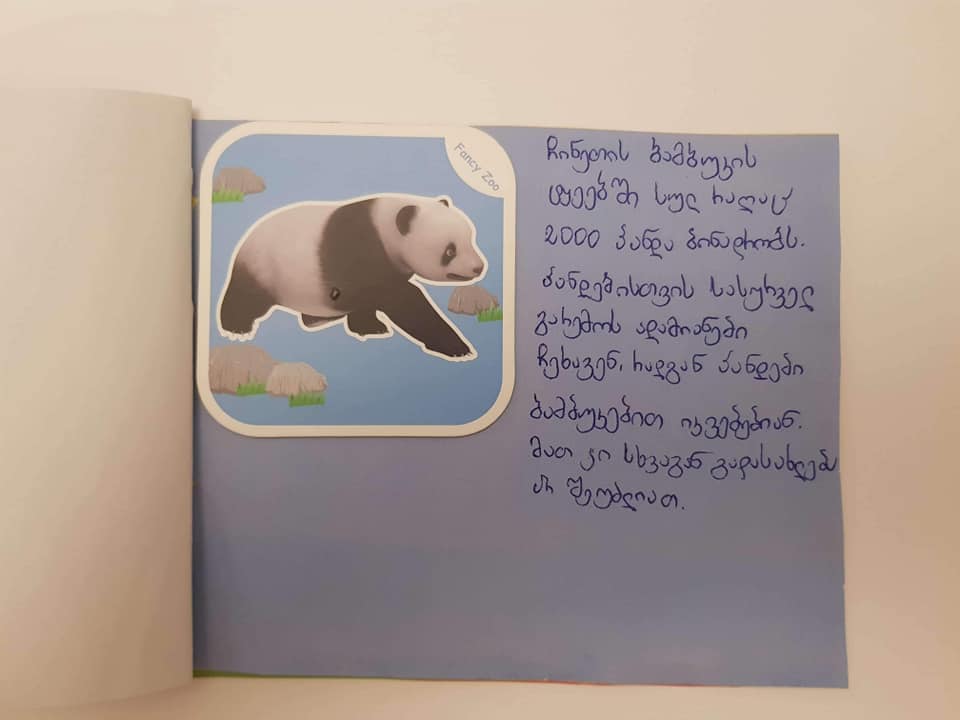 Fancy Zoo
ჩინეთის ბამბუკის
ტყეებში სულ რაღაც
2000 პანდა ბინადრობს.
პანდებისთვის სასურველ
გარემოს ადამიანები
ჩეხავენ, რადგან პანდები
ბამბუკებით იკვებებიან.
მათ კი სხვაგან გადასახლება
არ შეუძლიათ.